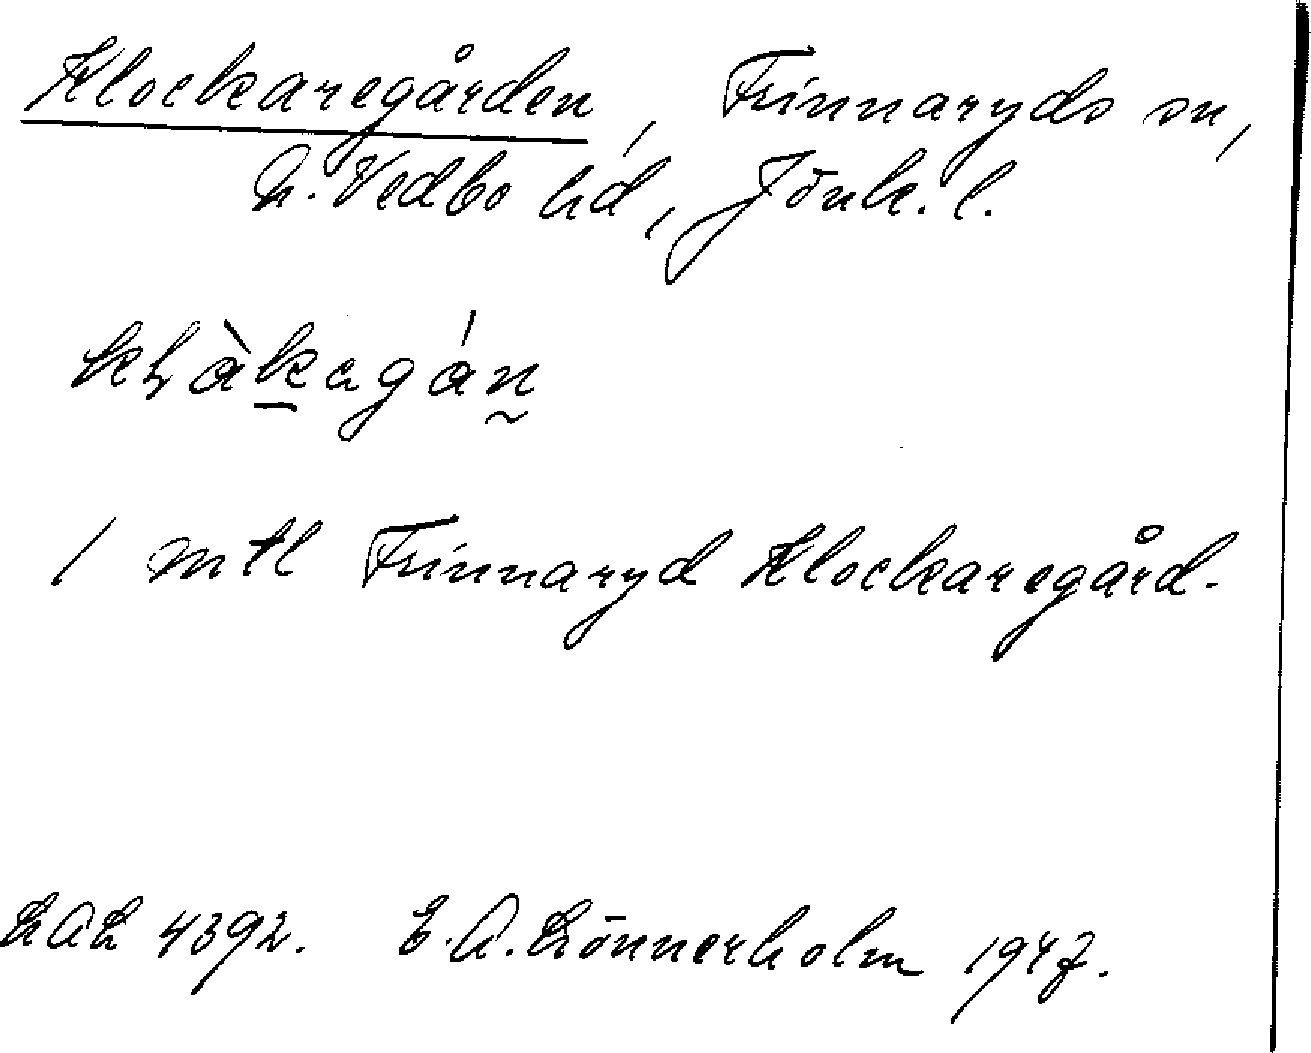 Klockaregården, Frinnaryds sn,
N. Vedbo hd, Jönk. l.
kḷàkagáṇ
1 mtl Frinnaryd Klockaregård.
LAL 4392. E. A. Lönnerholm 1947.